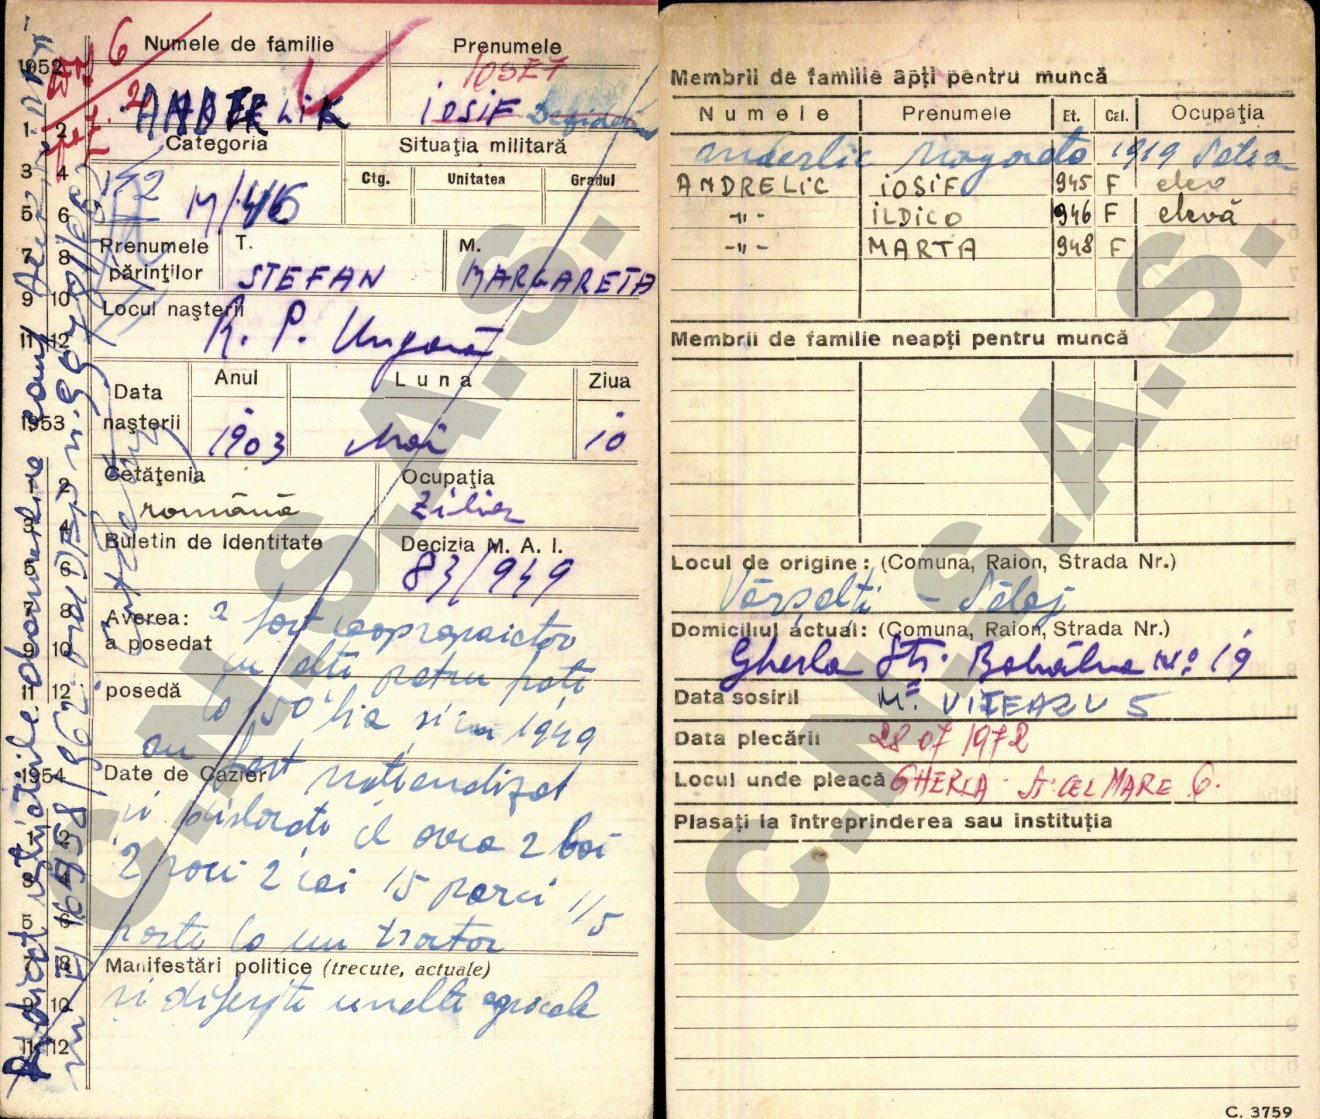 Numele de familie Prenumele
IOSEF
ANDERLIK IOSIF Desideriu
Categoria Situația militară
M/46 Ctg. Unitatea Gradul
Prenumele părinților T. STEFAN M. MARGARETA
Locul nașterii R. P. Ungară
Data nașterii Anul Luna Ziua
1903 Mai 10
Cetăţenia Ocupaţia
română Zilier
Buletin de Identitate Decizia M. A. I.
83/949
Averea:
a posedat a fost coproprietor
cu alti patru frati
posedă la 50 ha si in 1949
au fost nationalizat
Date de Cazier
si dislocati el avea 2 boi
2 vaci 2 cai 15 porci 1/5
parte la un tractor
Manifestări politice (trecute, actuale)
si diferite unelte agricole
1952
1 2
3 4
5 6
7 8
9 10
11 12
1953
2
3 4
5 6
7 8
9 10
11 12
1954
2
4
5 6
7 8
9 10
11 12
Ridicat restricțiile domiciliare
Membrii de familie apţi pentru muncă
Numele Prenumele Et. Cal. Ocupaţia
Anderlic Margareta 1919 Sotia
ANDRELIC IOSIF 945 F elev
-"- ILDICO 946 F elevă
-"- MARTA 948 F
Membrii de familie neapţi pentru muncă
Locul de origine: (Comuna, Raion, Strada Nr.)
Vârșolți - Sălaj
Domiciliul actual: (Comuna, Raion, Strada Nr.)
Gherla Str. Bobâlna No. 19
Data sosirii M. VITEAZU 5
Data plecării 28 07 1972
Locul unde pleacă GHERLA - ST. CEL MARE 6.
Plasaţi la întreprinderea sau instituţia
C. 3759
C.N.S.A.S.
C.N.S.A.S.